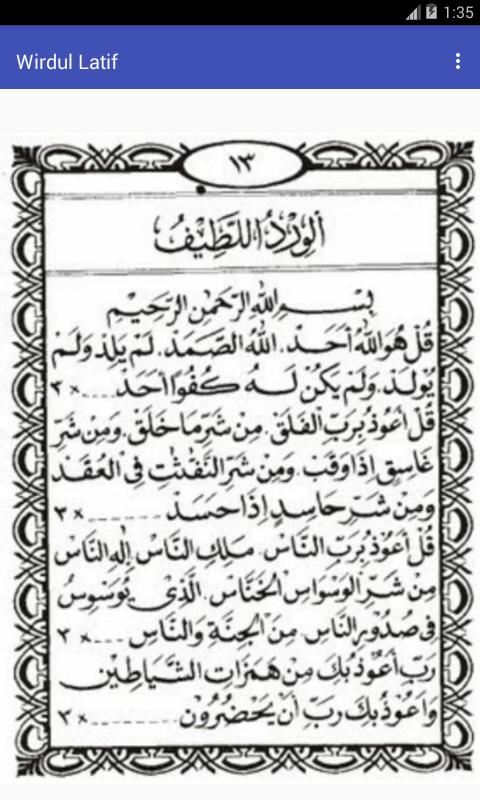 1:35
Wirdul Latif
١٣
اَلْوِرْدُ اللَّطِيْفُ
بِسْمِ اللهِ الرَّحْمٰنِ الرَّحِيْمِ
قُلْ هُوَ اللهُ أَحَدٌ. اَللهُ الصَّمَدُ. لَمْ يَلِدْ وَلَمْ
يُوْلَدْ. وَلَمْ يَكُنْ لَهُ كُفُوًا أَحَدٌ .... × ٣
قُلْ أَعُوْذُ بِرَبِّ الْفَلَقِ. مِنْ شَرِّ مَا خَلَقَ. وَمِنْ شَرِّ
غَاسِقٍ إِذَا وَقَبَ. وَمِنْ شَرِّ النَّفّٰثٰتِ فِى الْعُقَدِ
وَمِنْ شَرِّ حَاسِدٍ إِذَا حَسَدَ ------- × ٣
قُلْ أَعُوْذُ بِرَبِّ النَّاسِ. مَلِكِ النَّاسِ. إِلٰهِ النَّاسِ
مِنْ شَرِّ الْوَسْوَاسِ الْخَنَّاسِ. الَّذِى يُوَسْوِسُ
فِى صُدُوْرِ النَّاسِ. مِنَ الْجِنَّةِ وَالنَّاسِ ---- × ٣
رَبِّ أَعُوْذُ بِكَ مِنْ هَمَزَاتِ الشَّيَاطِيْنِ
وَاَعُوْذُ بِكَ رَبِّ أَنْ يَحْضُرُوْنِ --------- × ٣